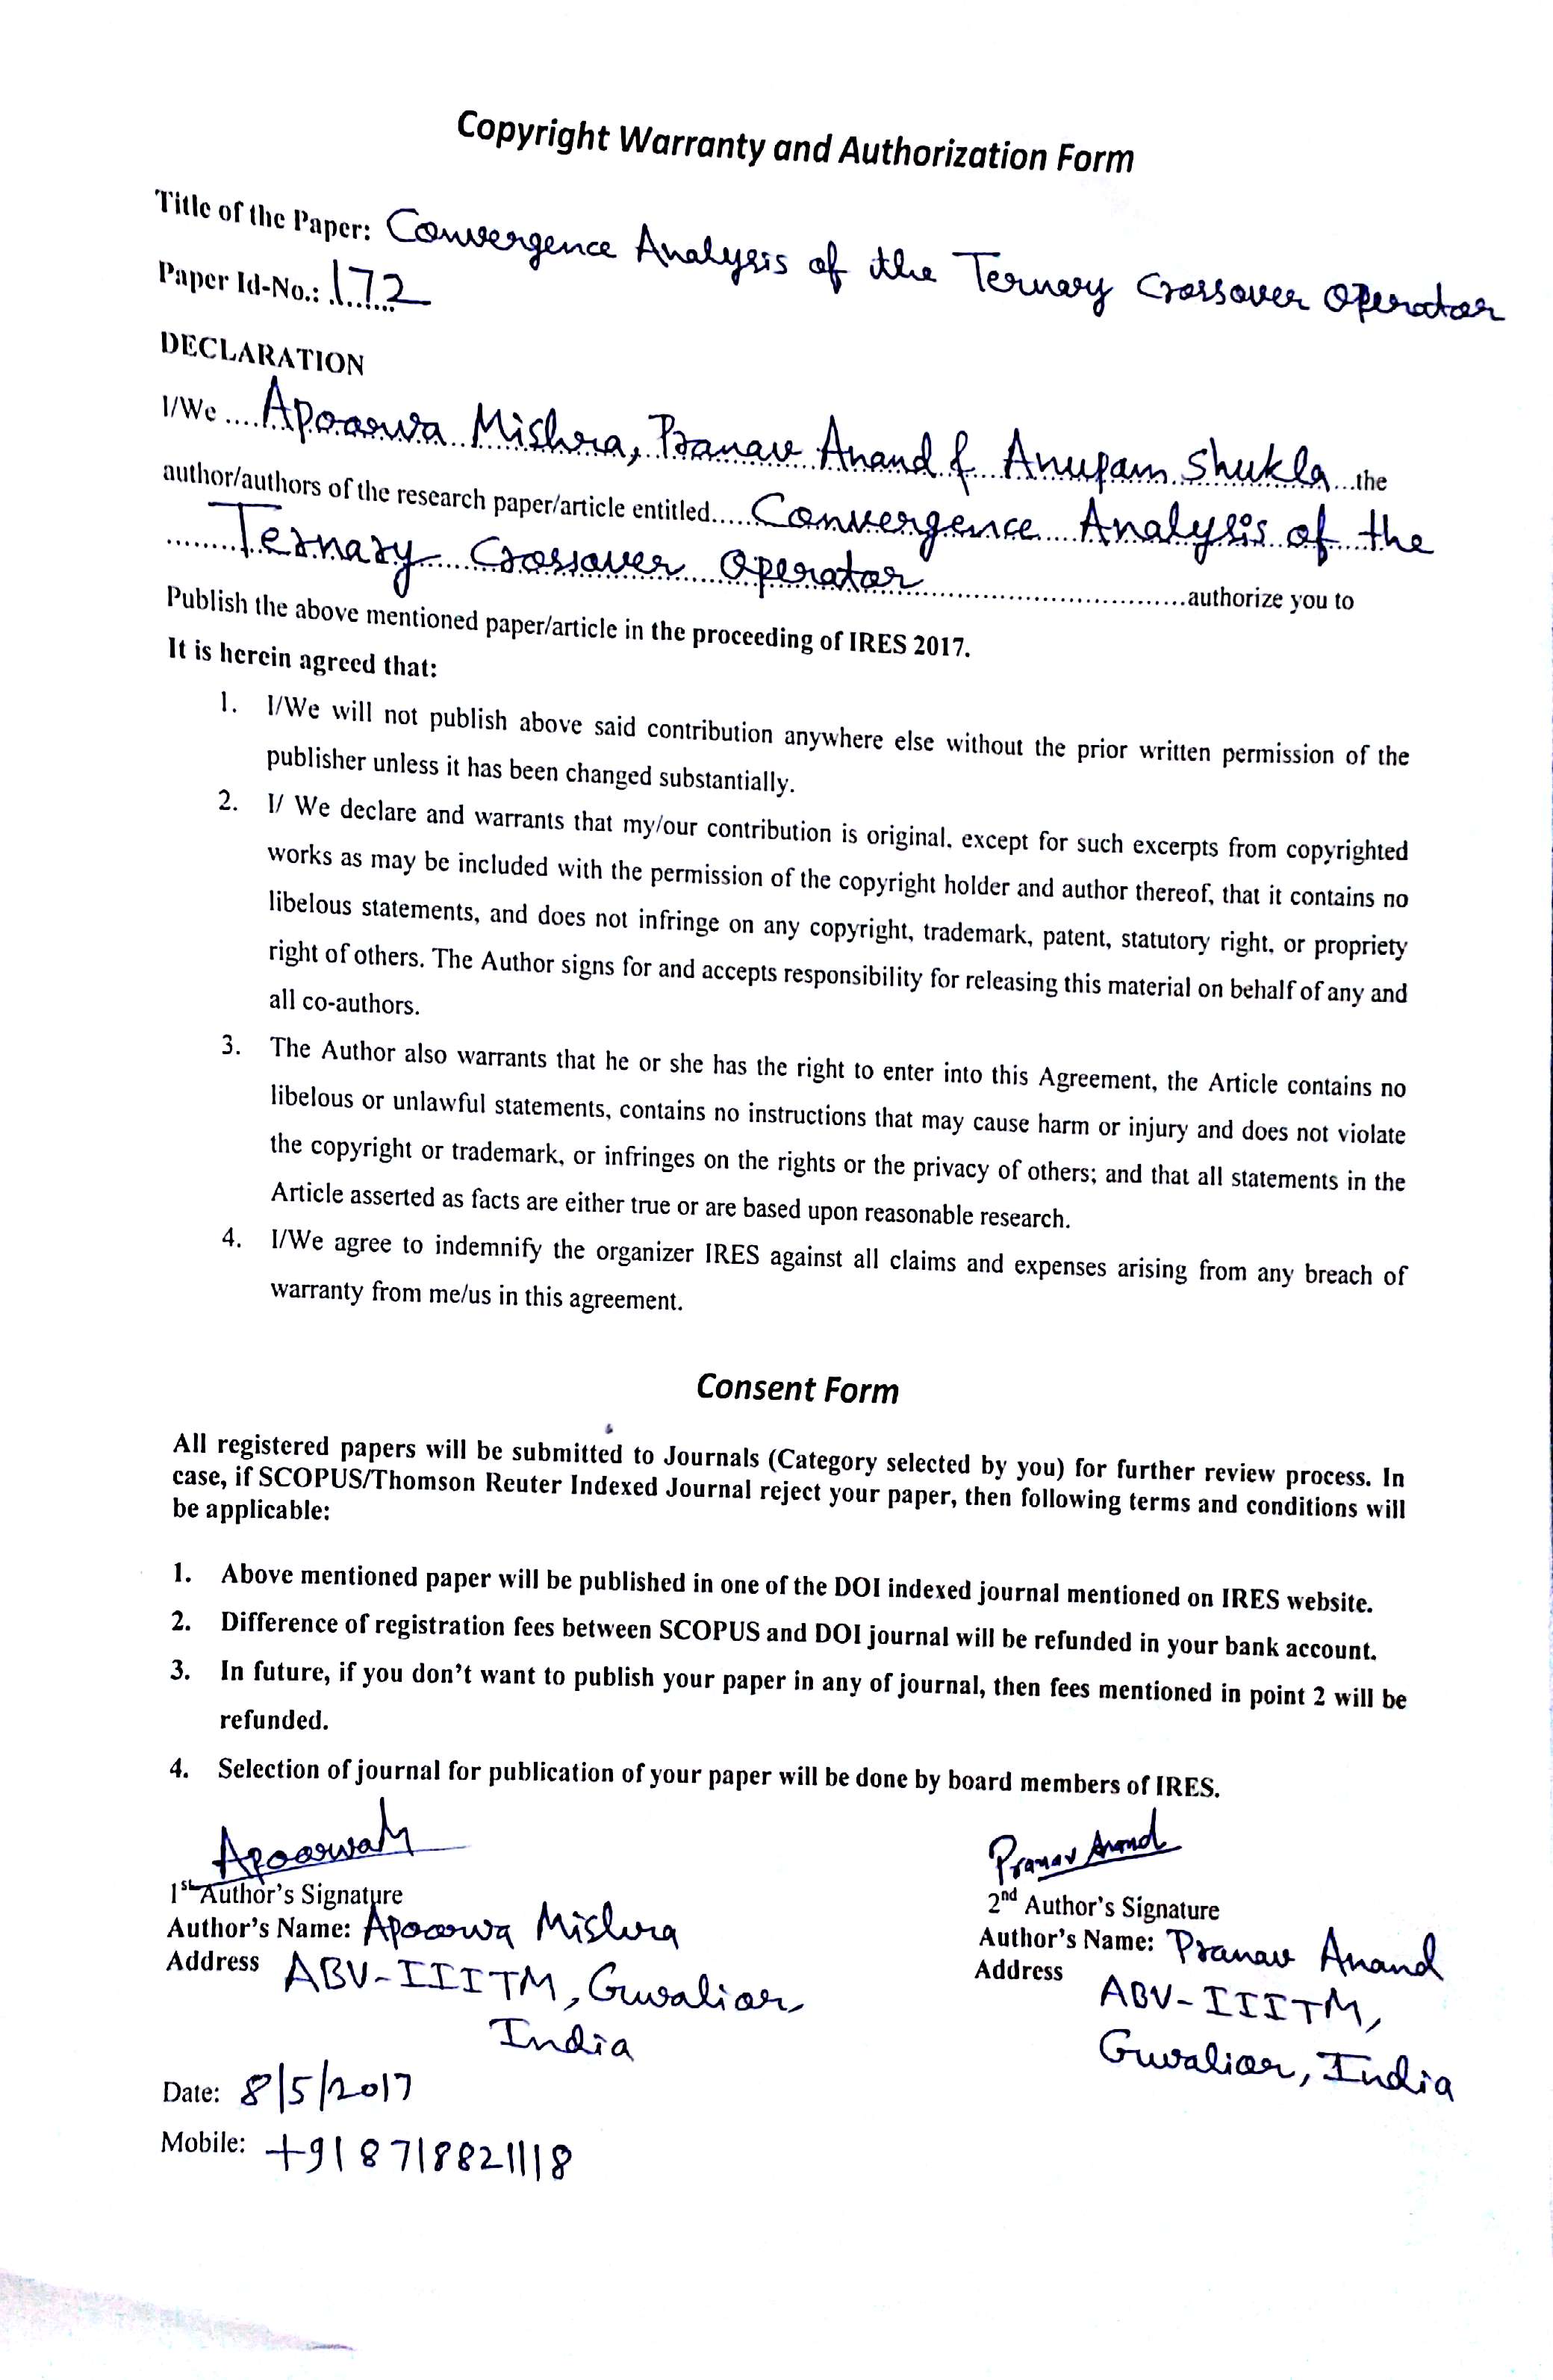 Copyright Warranty and Authorization Form
Title of the Paper: Convergence Analysis of the Ternary Crossover Operator
Paper Id-No.: 172
DECLARATION
I/We .... Apoorwa Mishra, Pranav Anand & Anupam Shukla ...the
author/authors of the research paper/article entitled..... Convergence Analysis of the
......... Ternary Crossover Operator ....................................authorize you to
Publish the above mentioned paper/article in the proceeding of IRES 2017.
It is herein agreed that:
1. I/We will not publish above said contribution anywhere else without the prior written permission of the
publisher unless it has been changed substantially.
2. I/ We declare and warrants that my/our contribution is original, except for such excerpts from copyrighted
works as may be included with the permission of the copyright holder and author thereof, that it contains no
libelous statements, and does not infringe on any copyright, trademark, patent, statutory right, or propriety
right of others. The Author signs for and accepts responsibility for releasing this material on behalf of any and
all co-authors.
3. The Author also warrants that he or she has the right to enter into this Agreement, the Article contains no
libelous or unlawful statements, contains no instructions that may cause harm or injury and does not violate
the copyright or trademark, or infringes on the rights or the privacy of others; and that all statements in the
Article asserted as facts are either true or are based upon reasonable research.
4. I/We agree to indemnify the organizer IRES against all claims and expenses arising from any breach of
warranty from me/us in this agreement.
Consent Form
All registered papers will be submitted to Journals (Category selected by you) for further review process. In
case, if SCOPUS/Thomson Reuter Indexed Journal reject your paper, then following terms and conditions will
be applicable:
1. Above mentioned paper will be published in one of the DOI indexed journal mentioned on IRES website.
2. Difference of registration fees between SCOPUS and DOI journal will be refunded in your bank account.
3. In future, if you don't want to publish your paper in any of journal, then fees mentioned in point 2 will be
refunded.
4. Selection of journal for publication of your paper will be done by board members of IRES.
ApoorwaM
1st Author's Signature
Author's Name: Apoorwa Mishra
Address ABV-IIITM, Gwalior,
India
Date: 8/5/2017
Mobile: +918718821118
Pranav Anand
2nd Author's Signature
Author's Name: Pranav Anand
Address ABV-IIITM,
Gwalior, India